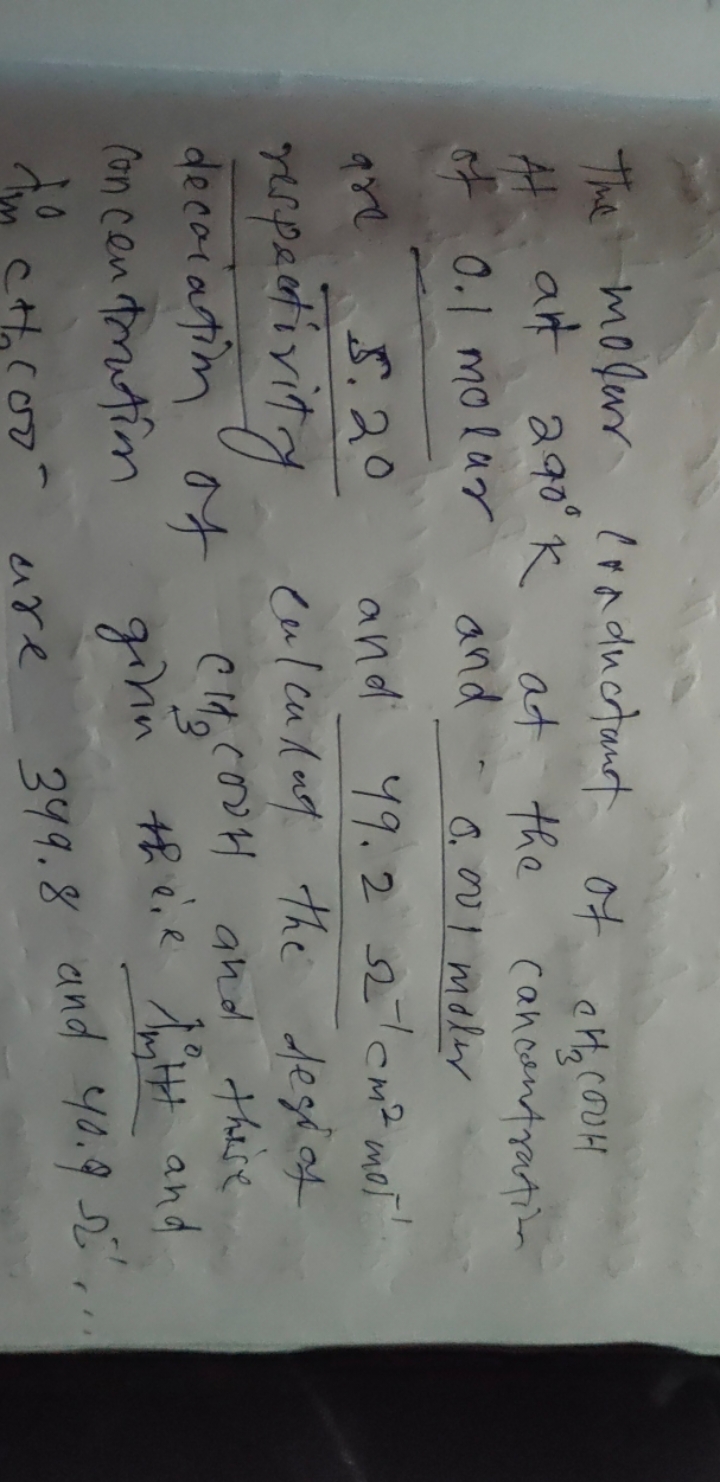 The molar conductant of CH3COOH
At at 290°K at the cancentration
of 0.1 molar and - 0.001 molar
are 5.20 and 49.2 Ω⁻¹ cm² mol⁻¹
respectivity Calculat the of
decoiation of CH3COOH and these
concentration given λ°mH and
λ°m CH3COO⁻ are 349.8 and 40.9 Ω⁻¹...